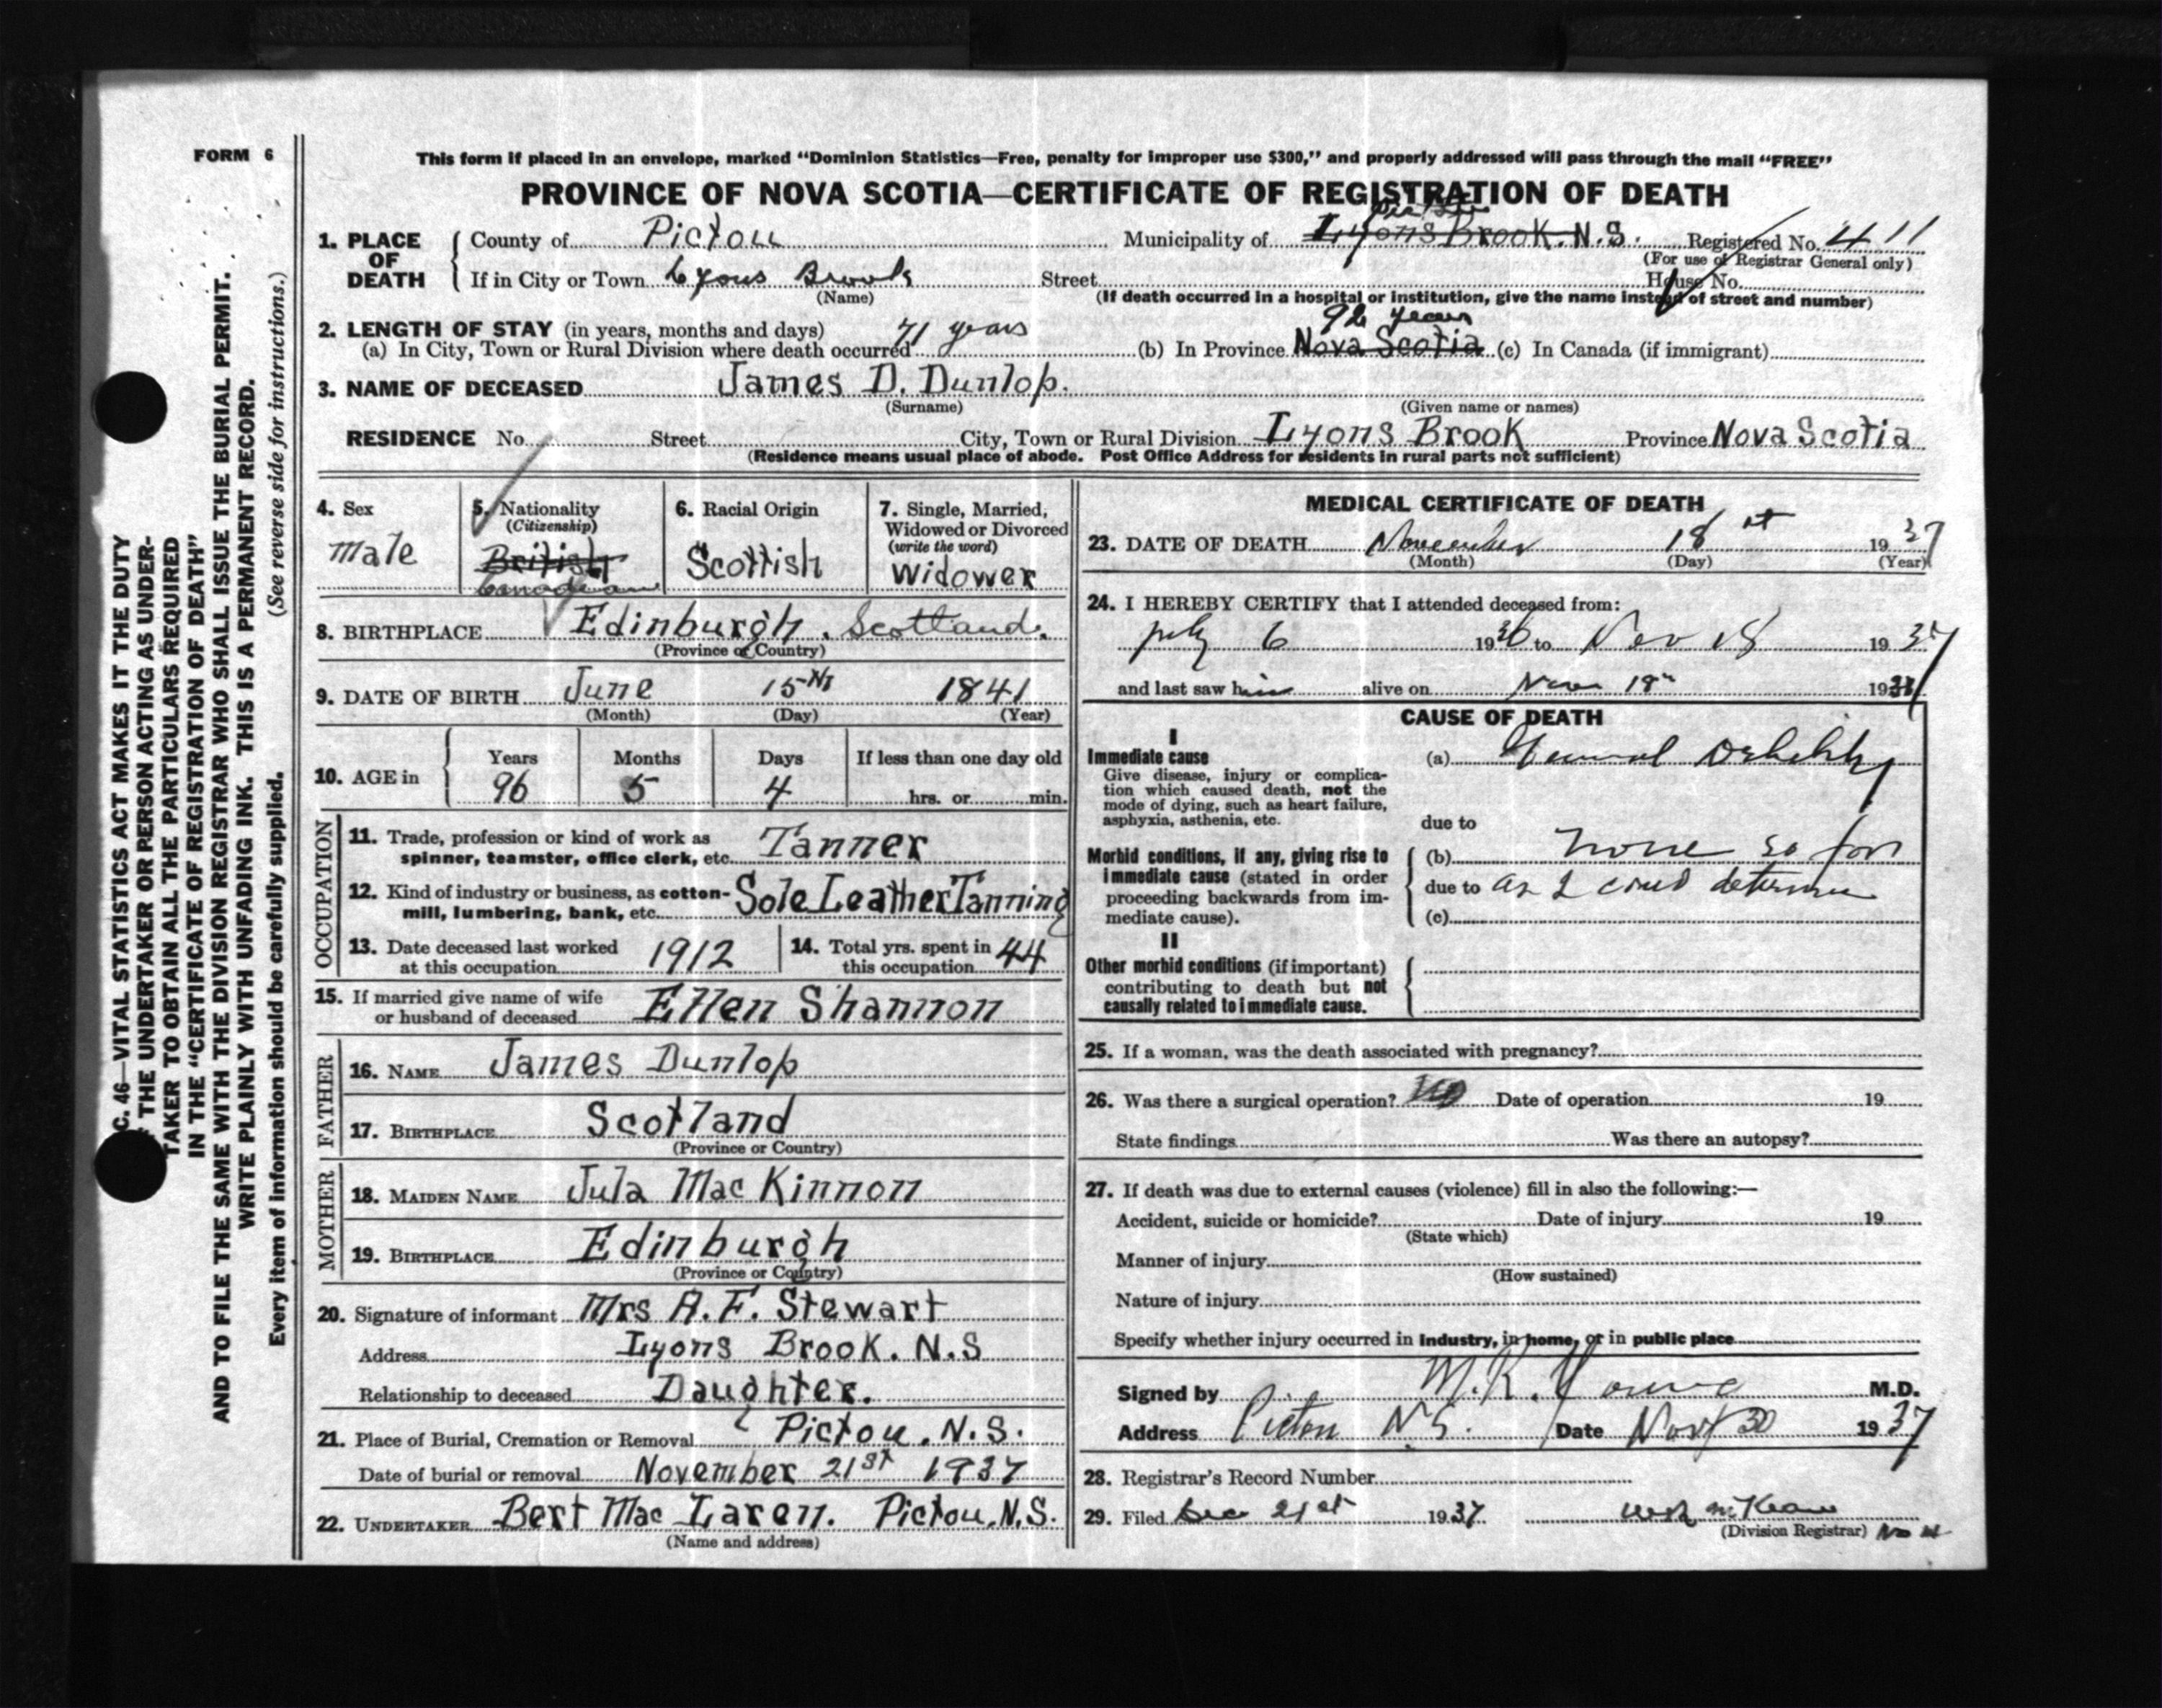 FORM 6
This form if placed in an envelope, marked “Dominion Statistics—Free, penalty for improper use $300,” and properly addressed will pass through the mail “FREE”
PROVINCE OF NOVA SCOTIA—CERTIFICATE OF REGISTRATION OF DEATH
1. PLACE OF DEATH County of Pictou Municipality of Pictou Lyons Brook. N.S. Registered No. 411
(For use of Registrar General only)
If in City or Town Lyons Brook Street House No.
(Name) (If death occurred in a hospital or institution, give the name instead of street and number)
2. LENGTH OF STAY (in years, months and days) 71 years 92 years
(a) In City, Town or Rural Division where death occurred (b) In Province Nova Scotia (c) In Canada (if immigrant)
3. NAME OF DECEASED James D. Dunlop.
(Surname) (Given name or names)
RESIDENCE No. Street City, Town or Rural Division Lyons Brook Province Nova Scotia
(Residence means usual place of abode. Post Office Address for residents in rural parts not sufficient)
4. Sex
male
5. Nationality
(Citizenship)
British
Canadian
6. Racial Origin
Scottish
7. Single, Married,
Widowed or Divorced
(write the word)
Widower
8. BIRTHPLACE Edinburgh. Scotland.
(Province or Country)
9. DATE OF BIRTH June 15th 1841
(Month) (Day) (Year)
10. AGE in Years Months Days If less than one day old
96 5 4 hrs. or min.
OCCUPATION
11. Trade, profession or kind of work as
spinner, teamster, office clerk, etc. Tanner
12. Kind of industry or business, as cotton-
mill, lumbering, bank, etc. Sole Leather Tanning
13. Date deceased last worked
at this occupation 1912
14. Total yrs. spent in
this occupation 44
15. If married give name of wife
or husband of deceased Ellen Shannon
FATHER
16. NAME James Dunlop
17. BIRTHPLACE Scotland
(Province or Country)
MOTHER
18. MAIDEN NAME Jula Mac Kinnon
19. BIRTHPLACE Edinburgh
(Province or Country)
20. Signature of informant Mrs A. F. Stewart
Address Lyons Brook. N.S
Relationship to deceased Daughter.
21. Place of Burial, Cremation or Removal Pictou. N.S.
Date of burial or removal November 21st 1937
22. UNDERTAKER Bert Mac Laren. Pictou. N.S.
(Name and address)
MEDICAL CERTIFICATE OF DEATH
23. DATE OF DEATH November 18 1937
(Month) (Day) (Year)
24. I HEREBY CERTIFY that I attended deceased from:
July 6 1936 to Nov 18 1937
and last saw him alive on Nov 18th 1937
CAUSE OF DEATH
I
Immediate cause
Give disease, injury or complica-
tion which caused death, not the
mode of dying, such as heart failure,
asphyxia, asthenia, etc.
(a) General Debility
due to
Morbid conditions, if any, giving rise to
immediate cause (stated in order
proceeding backwards from im-
mediate cause).
(b) none so far
due to as I could determine
(c)
II
Other morbid conditions (if important)
contributing to death but not
causally related to immediate cause.
25. If a woman, was the death associated with pregnancy?
26. Was there a surgical operation? no Date of operation 19
State findings Was there an autopsy?
27. If death was due to external causes (violence) fill in also the following:—
Accident, suicide or homicide? Date of injury 19
(State which)
Manner of injury
(How sustained)
Nature of injury
Specify whether injury occurred in industry, in home, or in public place
Signed by M.R. Young M.D.
Address Pictou N.S. Date Nov 30 1937
28. Registrar's Record Number
29. Filed Dec 21st 1937
(Division Registrar)
C. 46—VITAL STATISTICS ACT MAKES IT THE DUTY
THE UNDERTAKER OR PERSON ACTING AS UNDER-
TAKER TO OBTAIN ALL THE PARTICULARS REQUIRED
IN THE “CERTIFICATE OF REGISTRATION OF DEATH”
AND TO FILE THE SAME WITH THE DIVISION REGISTRAR WHO SHALL ISSUE THE BURIAL PERMIT.
WRITE PLAINLY WITH UNFADING INK. THIS IS A PERMANENT RECORD.
Every item of information should be carefully supplied. (See reverse side for instructions.)